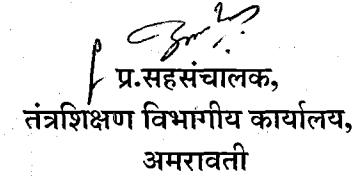 प्र.सहसंचालक,
तंत्रशिक्षण विभागीय कार्यालय,
अमरावती